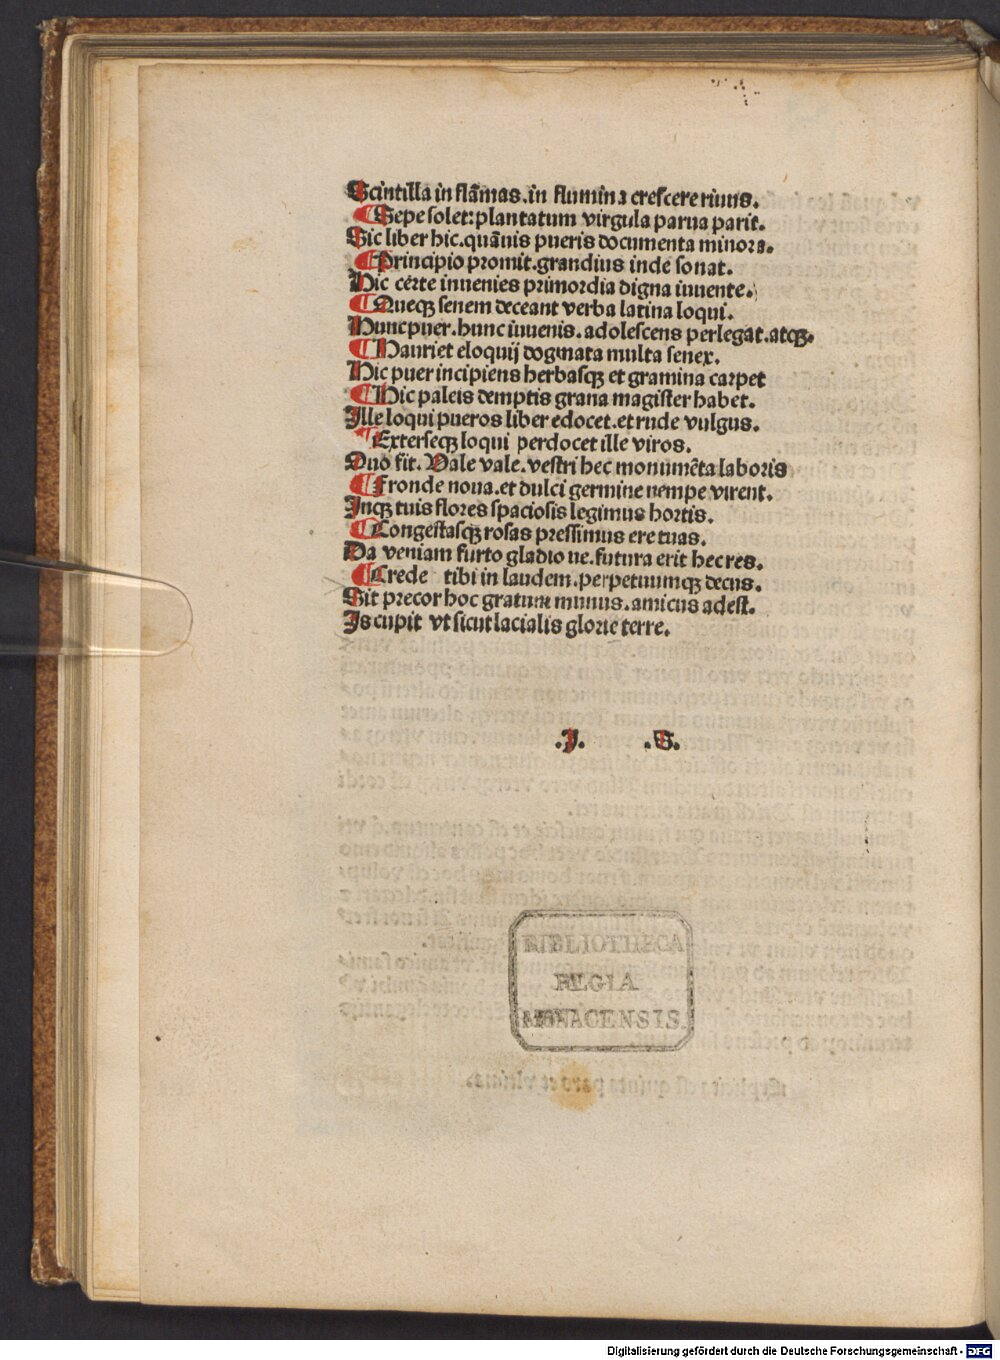 Scintilla in flāmas.in flumina crescere riuus.
¶Sepe solet:plantatum virgula parua parit.
Sic liber hic.quāuis pueris documenta minora.
¶Principio promit.grandius inde sonat.
Hic certe inuenies primordia digna iuuente.
¶Queqꝫ senem deceant verba latina loqui.
Hunc puer.hunc iuuenis.adolescens perlegat.atqꝫ.
¶Hauriet eloquij dogmata multa senex.
Hic puer incipiens herbasqꝫ et gramina carpet
¶Hic paleis demptis grana magister habet.
Ille loqui pueros liber edocet.et rude vulgus.
¶Exterseqꝫ loqui perdocet ille viros.
Quo fit. Vale vale.vestri hec monumēta laboris
¶Fronde noua.et dulci germine nempe virent.
Inqꝫ tuis flores spaciosis legimus hortis.
¶Congestasqꝫ rosas pressimus ere tuas.
Da veniam furto gladio ue.futura erit hec res.
¶Crede tibi in laudem.perpetuumqꝫ decus.
Sit precor hoc gratum munus.amicus adest.
Is cupit vt sicut lacialis glorie terre.
.J. .S.
BIBLIOTHECA
REGIA
MONACENSIS.
Digitalisierung gefördert durch die Deutsche Forschungsgemeinschaft - DFG